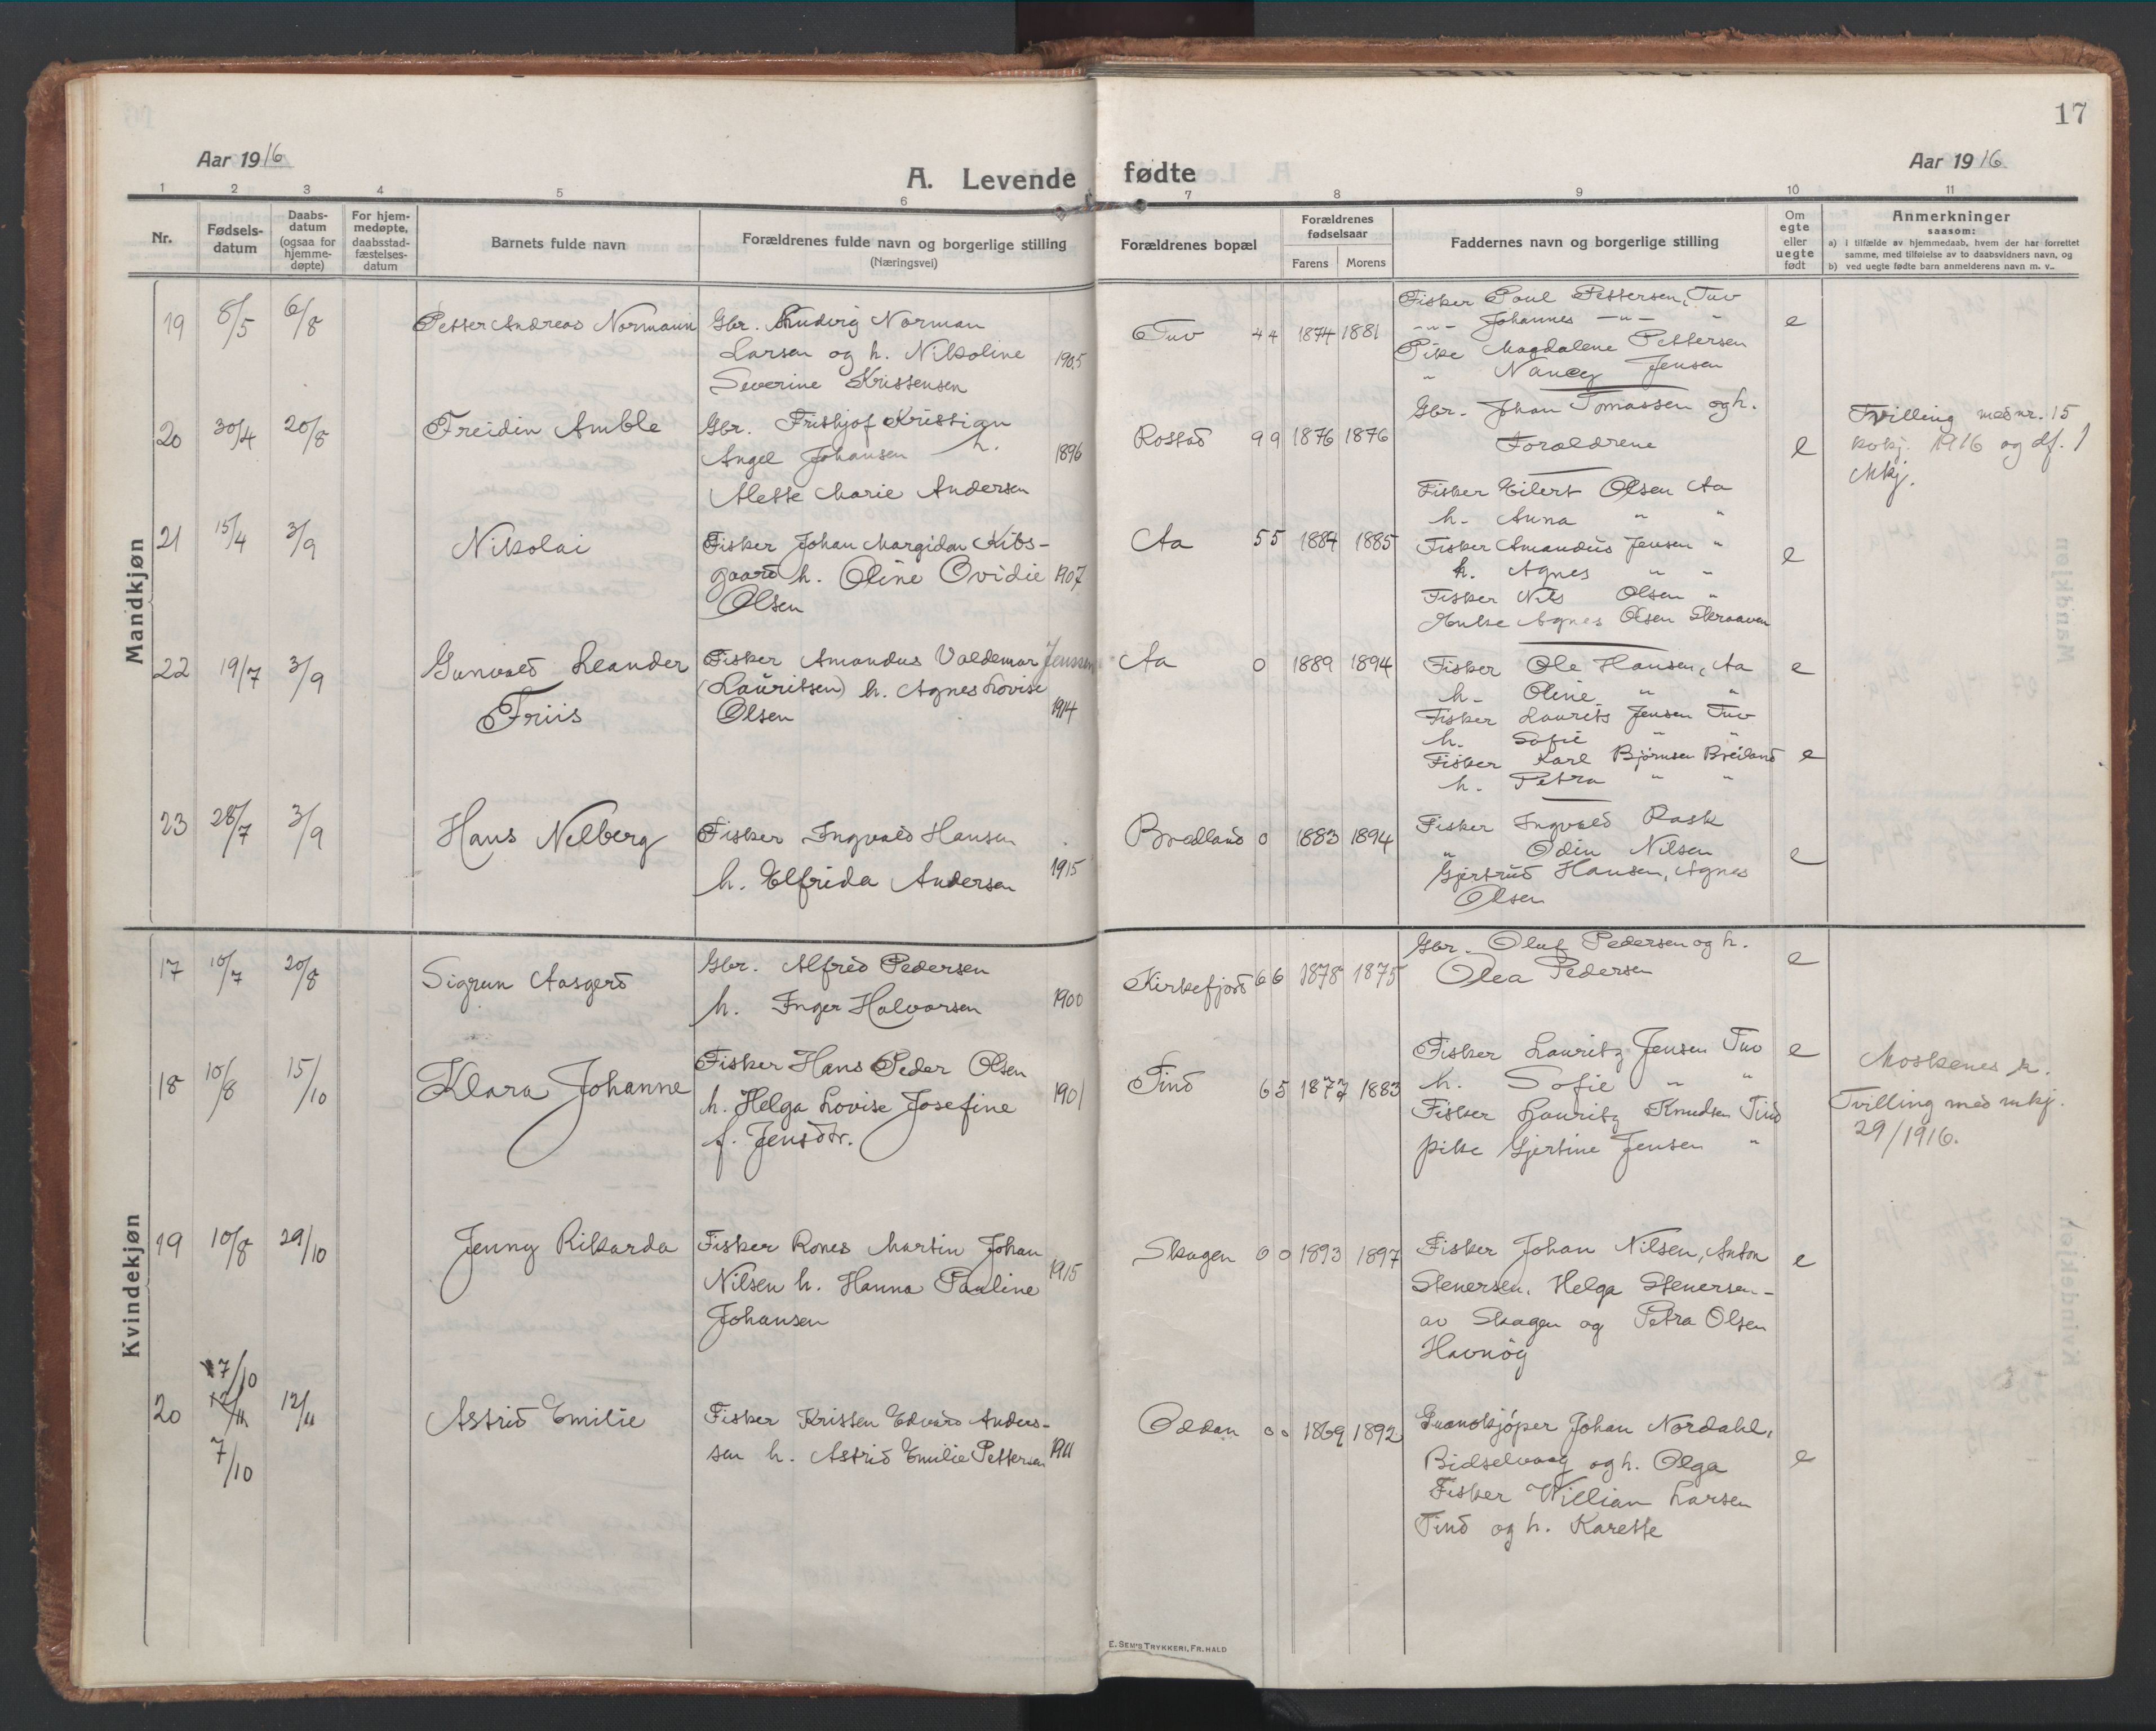 17
Aar 1916
A. Levende fødte
Aar 1916
1 2 3 4 5 6 7 8 9 10 11
Nr.
Fødsels-
datum
Daabs-
datum
(ogsaa for
hjemme-
døpte)
For hjem-
medøpte,
daabsstad-
fæstelses-
datum
Barnets fulde navn
Forældrenes fulde navn og borgerlige stilling
(Næringsvei)
Forældrenes bopæl
Forældrenes
fødselsaar
Farens Morens
Faddernes navn og borgerlige stilling
Om
egte
eller
uegte
født
Anmerkninger
saasom:
a) i tilfælde av hjemmedaab, hvem der har forrettet
samme, med tilføielse av to daabsvidners navn, og
b) ved uegte fødte barn anmelderens navn m. v..
Mandkjøn
19 8/5 6/8 Petter Andreas Normann
Gbr. Ludvig Norman
Larsen og h. Nikoline 1905
Severine Kristensen
Tuv 44 1874 1881
Fisker Poul Pettersen, Tuv
-"- Johannes -"- "
Pike Magdalene Pettersen
" Nancy Jensen
e
20 30/4 20/8 Freidin Amble
Gbr. Fritjof Kristian
Angel Johansen h. 1896
Alette Marie Andersen
Rostad 99 1876 1876
Gbr. Johan Tomassen og h.
Forældrene
e
Tvilling med nr. 15
kvkj. 1916 og df. 1
Mkj.
21 15/4 3/9 Nikolai
Fisker Johan Margidon Kibs-
gaard h. Oline Ovidie 1907
Olsen
Aa 55 1884 1885
Fisker Eilert Olsen Aa
h. Anna " "
Fisker Amandus Jensen "
h. Agnes " "
Fisker Nils Olsen "
Enke Agnes Olsen Skraaven
e
22 19/7 3/9 Gunvald Leander
Friis
Fisker Amandus Valdemar Jenssen
(Lauritsen) h. Agnes Lovise
Olsen 1914
Aa 0 1889 1894
Fisker Ole Hansen, Aa
h. Oline " "
Fisker Laurits Jensen Tuv
h. Sofie " "
Fisker Karl Bjørnsen Breiland
h. Petra " "
e
e
23 28/7 3/9 Hans Nelberg
Fisker Ingvald Hansen
h. Elfrida Andersen 1915
Bredland 0 1883 1894
Fisker Ingvald Rask
" Odin Nilsen
Gjertrud Hansen, Agnes
Olsen
e
Kvindekjøn
17 10/7 20/8 Sigrun Aasgerd
Gbr. Alfred Pedersen
h. Inger Halvorsen 1900
Kirkefjord 66 1878 1875
Gbr. Oluf Pedersen og h.
Olea Pedersen
e
18 10/8 15/10 Klara Johanne
Fisker Hans Peder Olsen
h. Helga Lovise Josefine 1901
f. Jensdtr.
Tind 65 1877 1883
Fisker Lauritz Jensen Tuv
h. Sofie " "
Fisker Lauritz Knudsen Tind
pike Gjertine Jensen "
e
Moskenes k.
Tvilling med mkj.
29/1916.
19 10/8 29/10 Jenny Rikarda
Fisker Rones Martin Johan
Nilsen h. Hanna Pauline 1915
Johansen
Skagen 00 1893 1897
Fisker Johan Nilsen, Anton
Stenersen, Helga Stenersen-
av Skagen og Petra Olsen
Havnög
e
7/10
20 12/11 12/11 Astrid Emilie
7/10
Fisker Kristen Edvard Anders-
sen h. Astrid Emilie Pettersen 1911
Oddan 00 1869 1892
Guanokjøper Johan Nordahl,
Bidselvaag og h. Olga
Fisker Willian Larsen
Tind og h. Karette
e
E. SEM'S TRYKKERI, FR.HALD